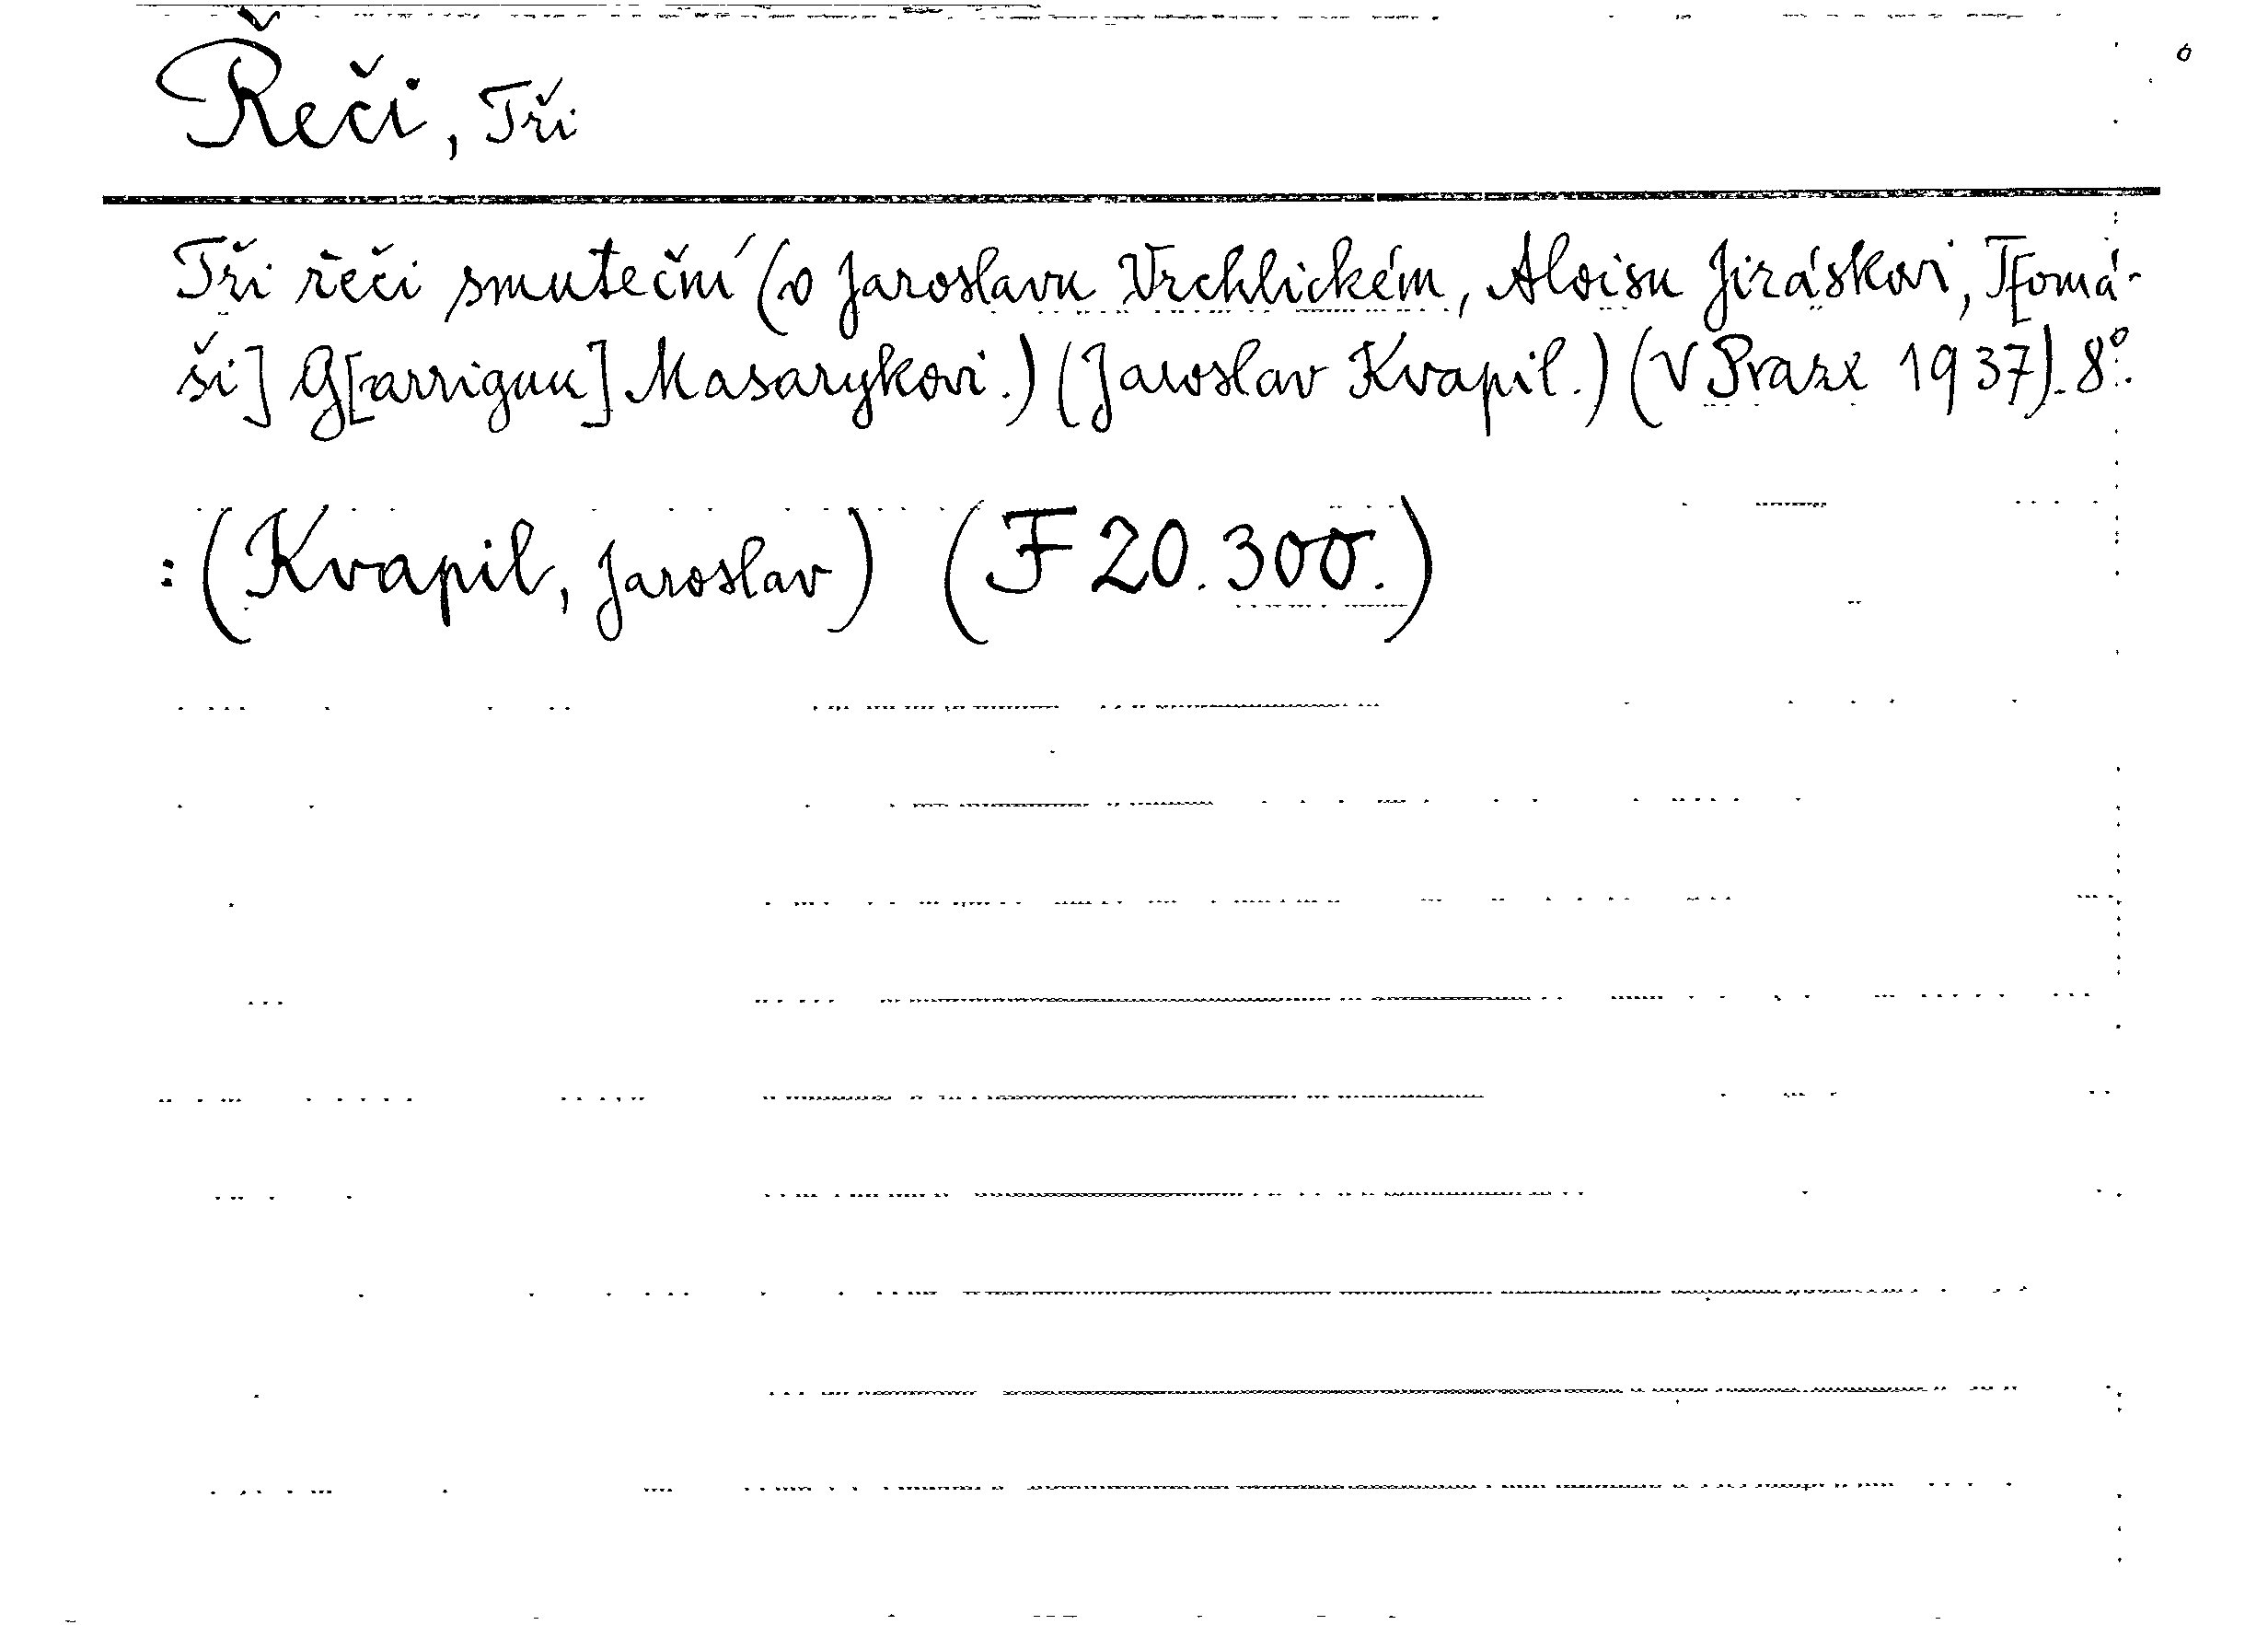 Řeči, Tři
Tři řeči smuteční (o Jaroslavu Vrchlickém, Aloisu Jiráskovi, T[omá-
ši] G[arriguu] Masarykovi.) (Jaroslav Kvapil.) (V Praze 1937). 8°.
: (Kvapil, Jaroslav) (F 20.300.)